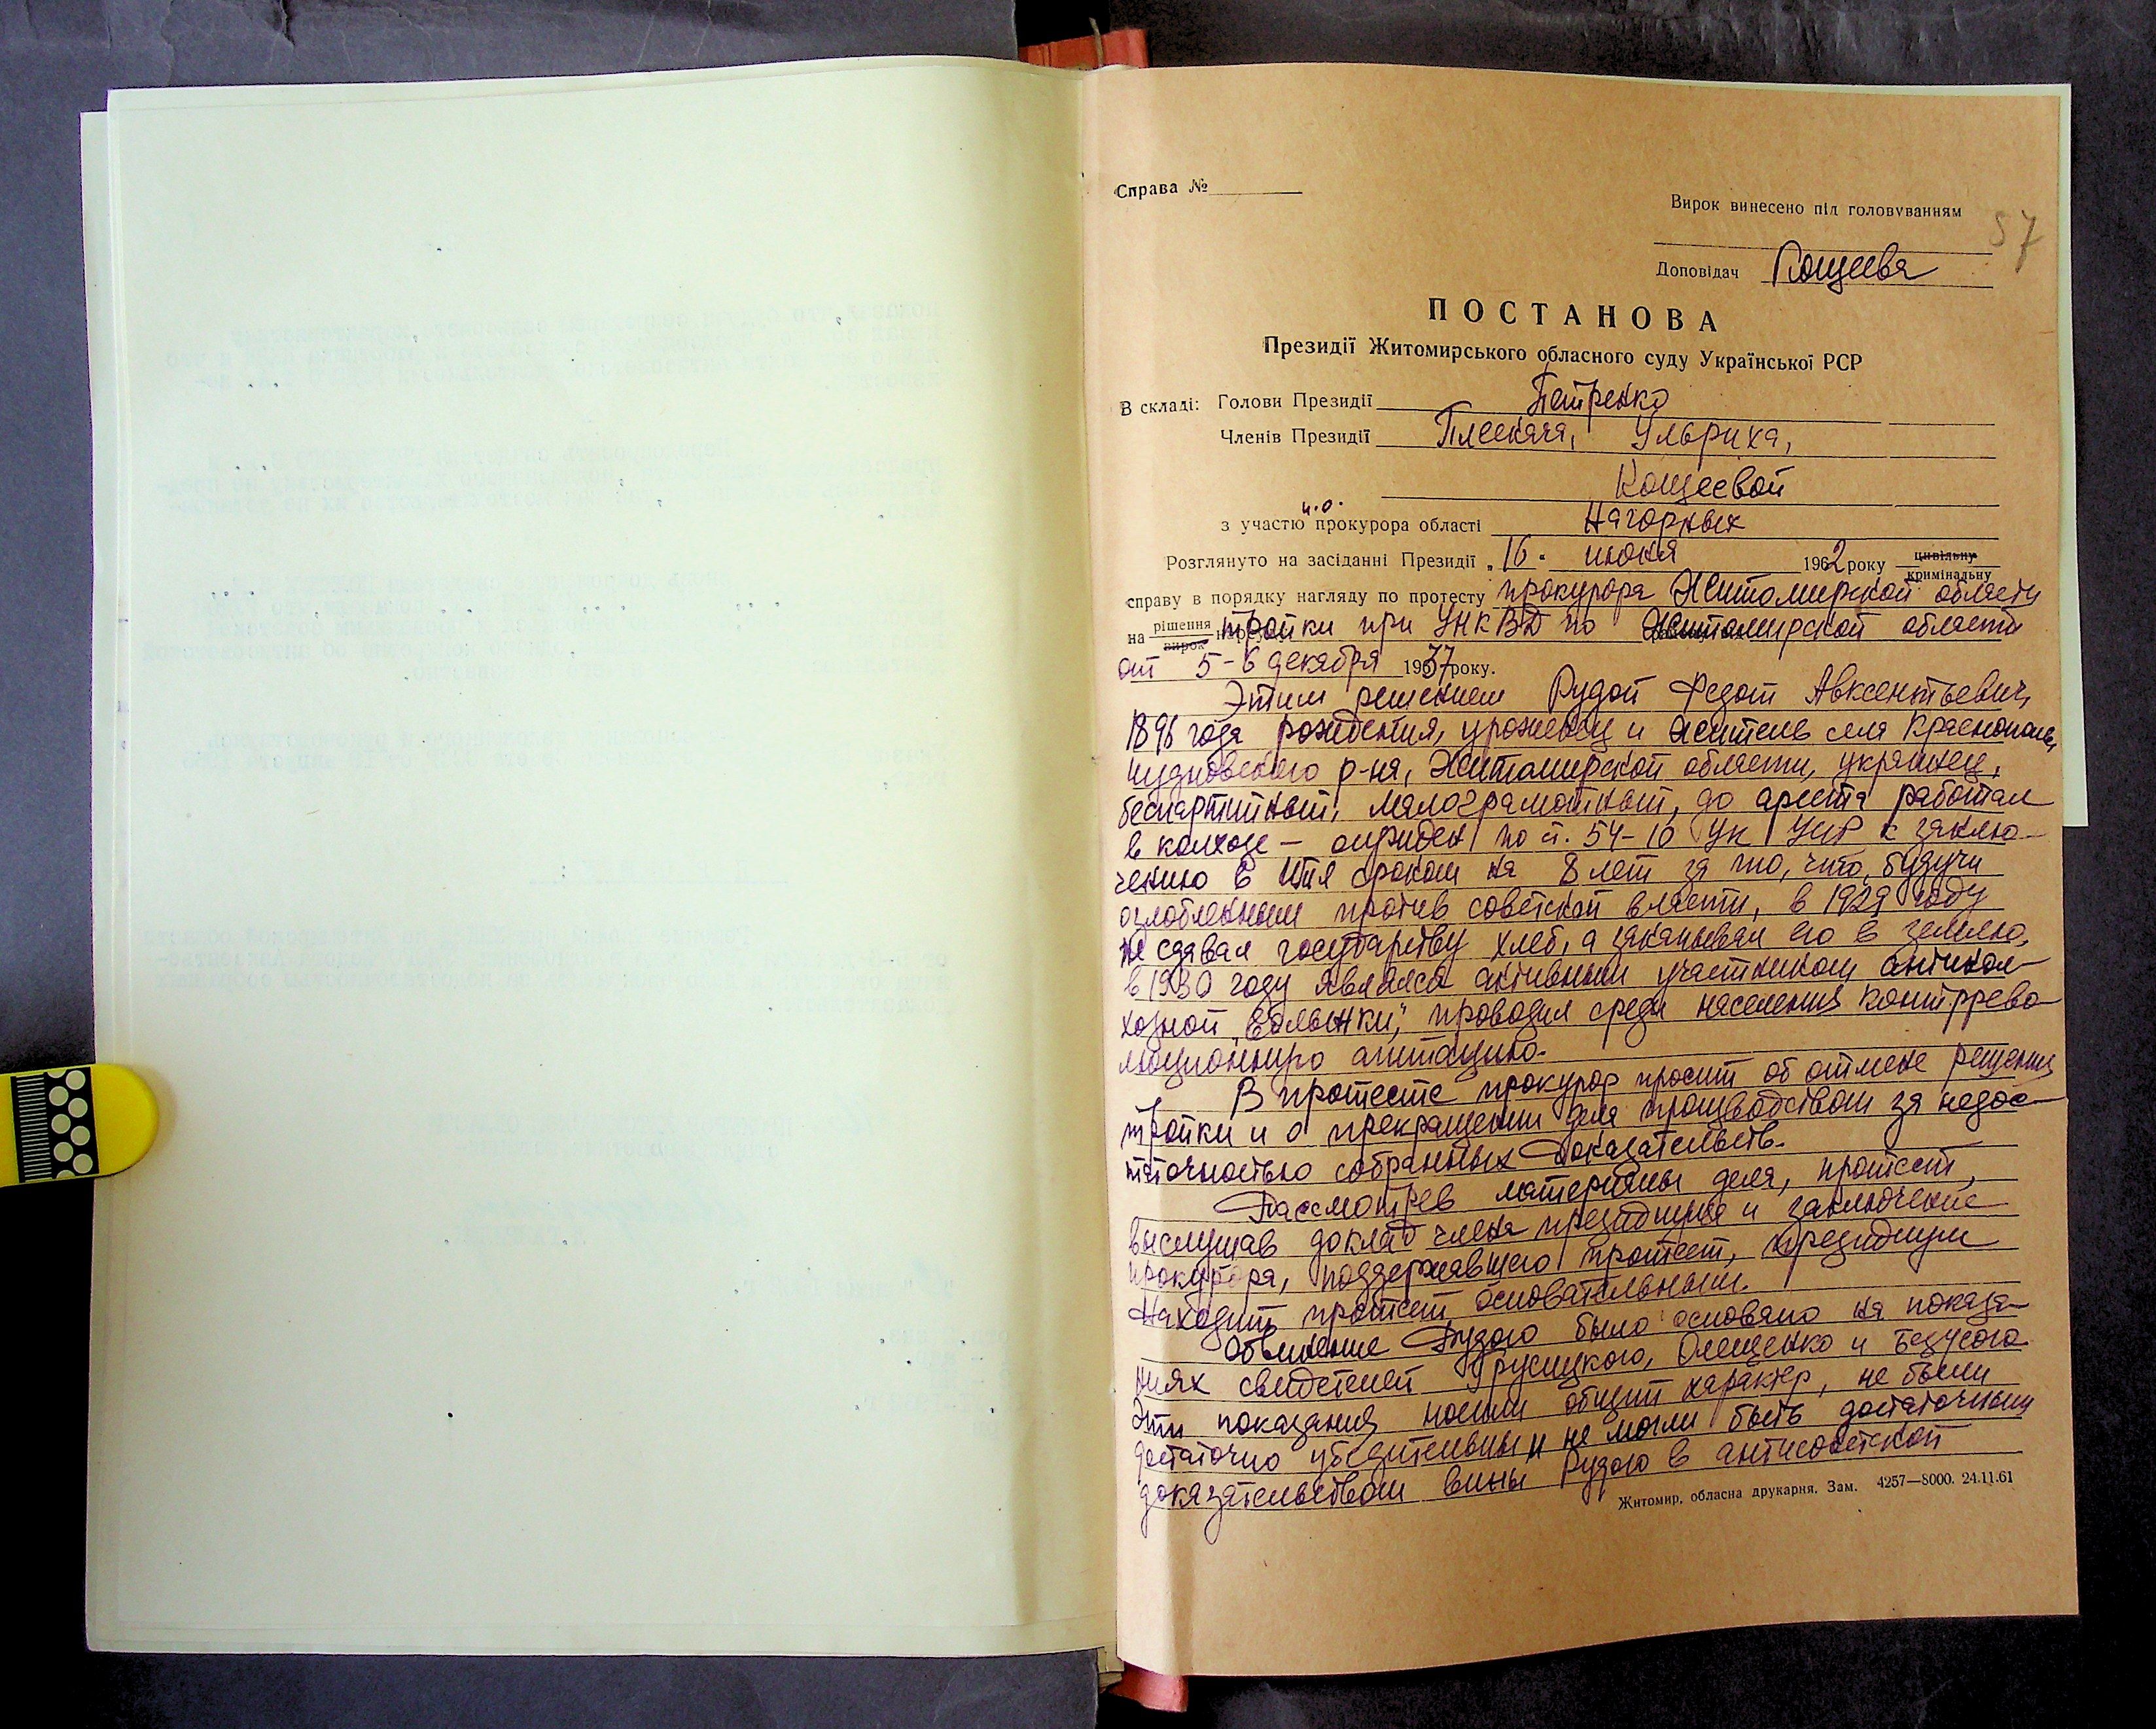 Справа №
Вирок винесено під головуванням
57
Доповідач Кощеева
ПОСТАНОВА
Президії Житомирського обласного суду Української РСР
В складі: Голови Президії Петренко
Членів Президії Плескача, Ульриха,
Кощеевой
и.о.
з участю прокурора області Нагорных
Розглянуто на засіданні Президії „16" июня 1962 року цивільну кримінальну
справу в порядку нагляду по протесту прокурора Житомирской области
на рішення вирок тройки при УНКВД по Житомирской области
от 5-6 декабря 1937 року.
Этим решением Рудой Федот Авксентьевич,
1896 года рождения, уроженец и житель села Краснополь,
Чудновского р-на, Житомирской области, украинец,
беспартийный, малограмотный, до ареста работал
в колхозе – осужден по ст. 54-10 УК УССР к заклю-
чению в ИТЛ сроком на 8 лет за то, что, будучи
озлобленным против советской власти, в 1929 году
не сдавал государству хлеб, а закапывал его в землю,
в 1930 году являлся активным участником антикол-
хозной „Волынки," проводил среди населения контррево-
люционную агитацию.
В протесте прокурор просит об отмене решения
тройки и о прекращении дела производством за недос-
таточностью собранных доказательств.
Рассмотрев материалы дела, протест,
выслушав доклад члена президиума и заключение
прокурора, поддержавшего протест, президиум
находит протест основательным.
Обвинение Рудого было основано на показа-
ниях свидетелей Грусицкого, Олещенко и Безусого
Эти показания носили общий характер, не были
достаточно убедительны и не могли быть достаточным
доказательством вины Рудого в антисоветской
Житомир, обласна друкарня. Зам. 4257—8000. 24.11.61